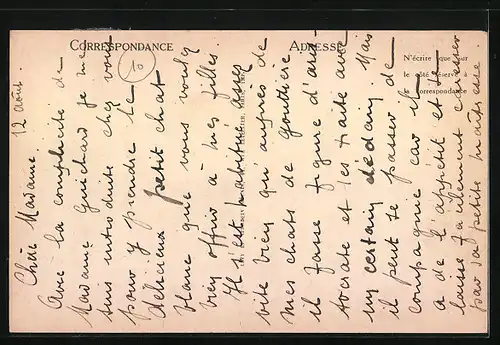 CORRESPONDANCE
ADRESSE
N'écrire que sur
le côté réservé à
la correspondance
10
12 août.
Chère Madame.
Avec la complicité de
Madame Guichard je me
suis introduite chez vous
pour y prendre le
délicieux petit chat
blanc que vous voulez
bien offrir à mes filles.
Il s'est habitué assez
vite bien qu'auprès de
mes chats de gouttière
il fasse figure d'aris-
tocrate et les traite avec
un certain dédain. Mais
il peut se passer de
compagnie car il
a de l'appétit et se
laisse facilement caresser
par sa petite maîtresse